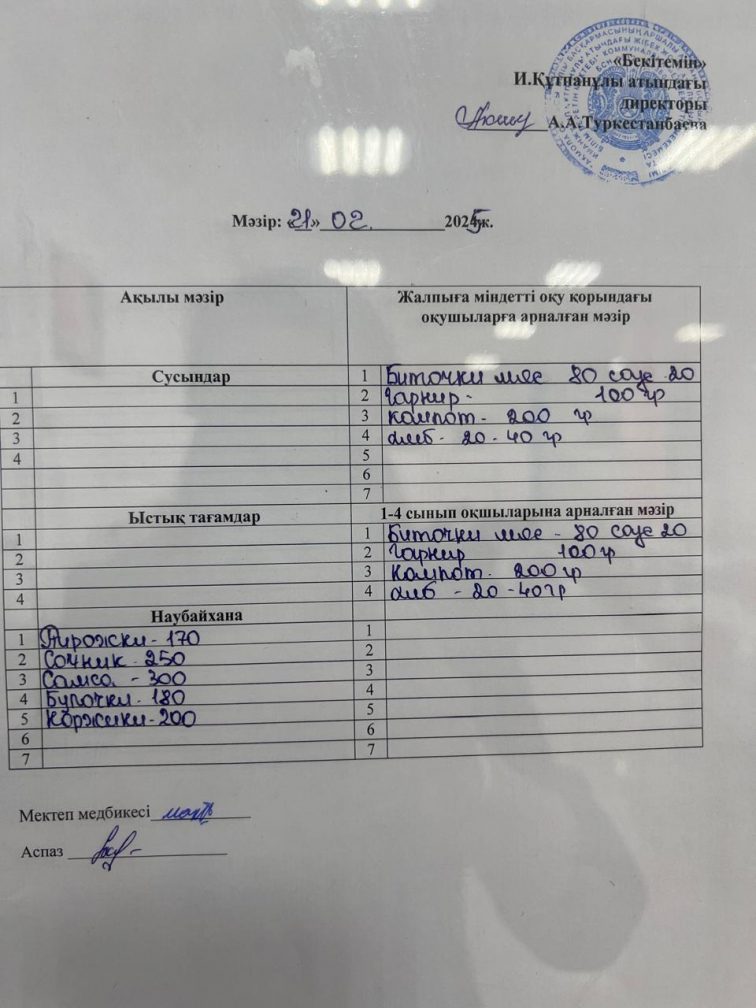 «Бекітемін»
И.Құтпанұлы атындағы
директоры
А.А.Туркестанбаева
Мәзір: «21» 02. 2025ж.
Ақылы мәзір
Жалпыға міндетті оқу қорындағы
оқушыларға арналған мәзір
Сусындар
1
2
3
4
1 Биточки мяс 80 соус 20
2 Гарнир - 100 гр
3 Компот - 200 гр
4 Хлеб - 20 - 40 гр
5
6
7
Ыстық тағамдар
1
2
3
4
1-4 сынып оқшыларына арналған мәзір
1 Биточки мяс - 80 соус 20
2 Гарнир 100 гр
3 Компот - 200 гр
4 Хлеб - 20 - 40 гр
Наубайхана
1 Пирожки - 170
2 Сочник - 250
3 Самса - 300
4 Булочки - 180
5 Коржики - 200
6
7
1
2
3
4
5
6
7
Мектеп медбикесі
Аспаз